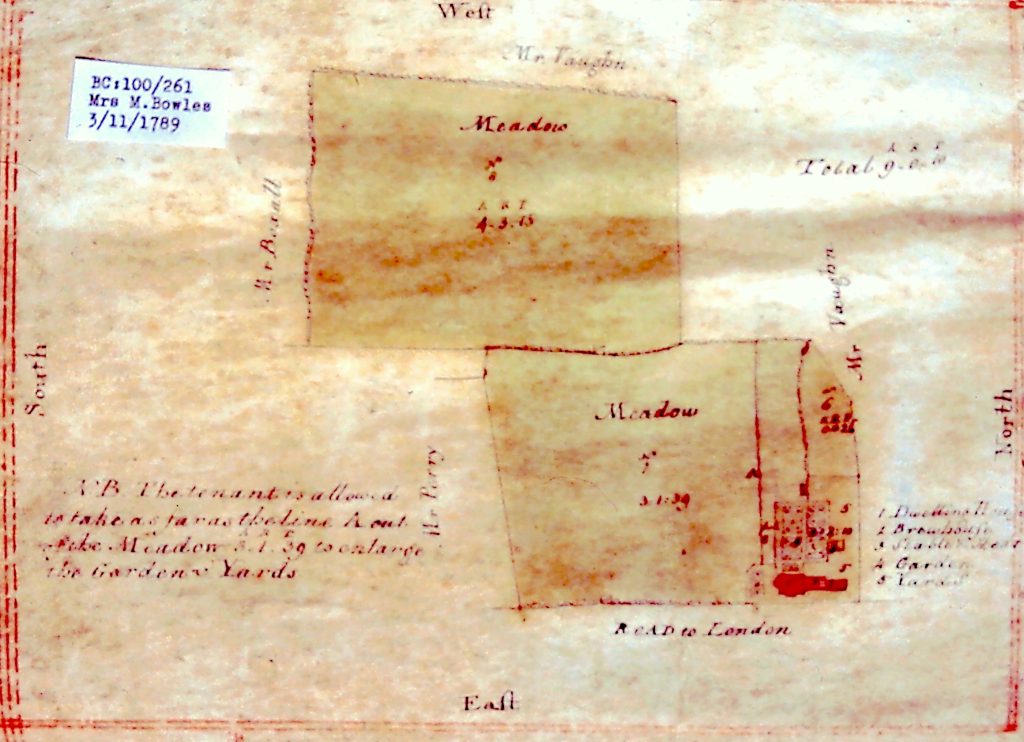 Weſt
Mr. Vaughn
BC:100/261
Mrs M.Bowles
3/11/1789
Meadow
No
8
A R P
4. 3. 13
A R P
Total 9. 0. 10
Mr Boxall
Vaughn
Mr
South
North
Meadow
No
7
3. 1. 39
6
A R P
Mr Perry
A
NB. The tenant is allowed
to take as far as the line A out
of the Meadow 3. 1. 39 to enlarge
the Garden & Yards
5
5
1 Dwelling
2 Brewhouse
3 Stables
4 Garden
5 Yards
ROAD to London
Eaſt